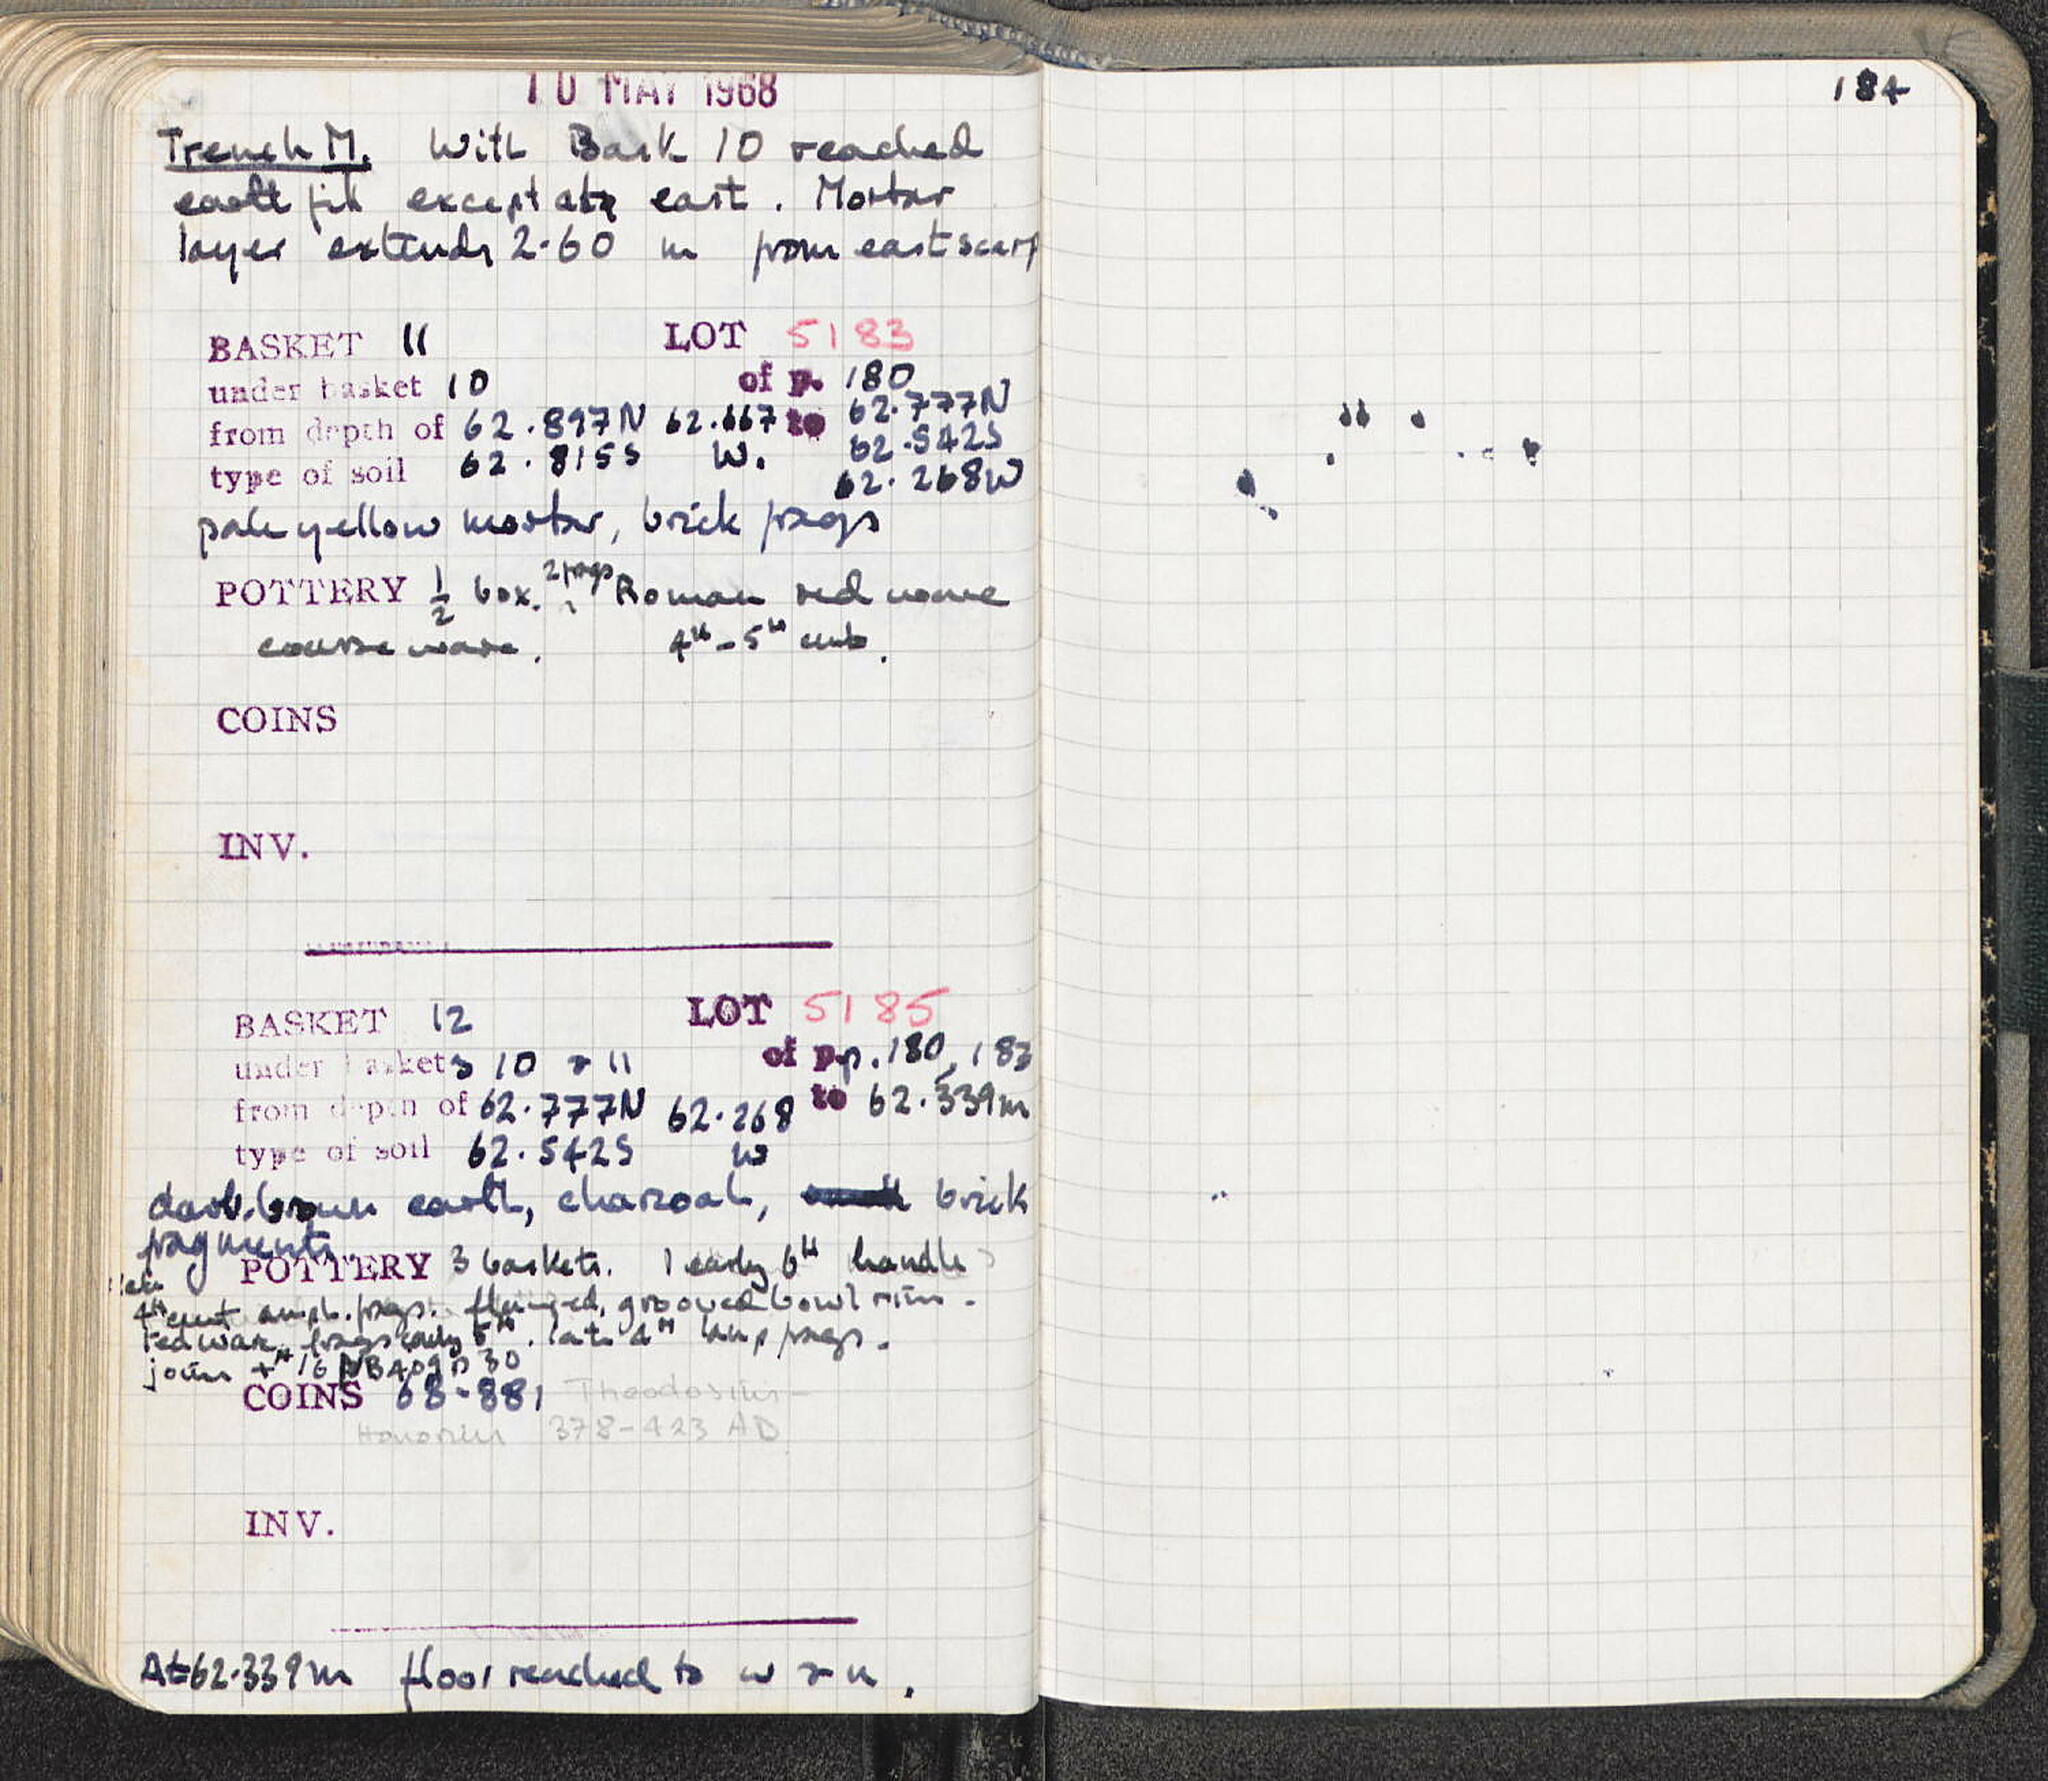 10 MAY 1968
184
Trench M. With Bask 10 reached
earth fill except at east. Mortar
layer extends 2.60 m from east scarp
BASKET 11 LOT 5183
under basket 10 of p. 180
from depth of 62.897N 62.667 to 62.777N
type of soil 62.815S W. 62.542S
62.268W
pale yellow mortar, brick frags
POTTERY 1/2 box. 2 frags Roman red ware
coarse ware. 4th-5th cent.
COINS
INV.
BASKET 12 LOT 5185
under baskets 10 + 11 of pp. 180, 183
from depth of 62.777N 62.268 to 62.339m
type of soil 62.542S W
dark brown earth, charcoal, brick
fragments
POTTERY 3 baskets. 1 early 6th handle
late
4th cent amph. frags. flanged, grooved bowl rim.
red ware frags early 5th. late 4th lamp frags.
joins 16 NB409 p 30
COINS 68-881 Theodosius-
Honorius 378-423 AD
INV.
At 62.339m floor reached to w + n.